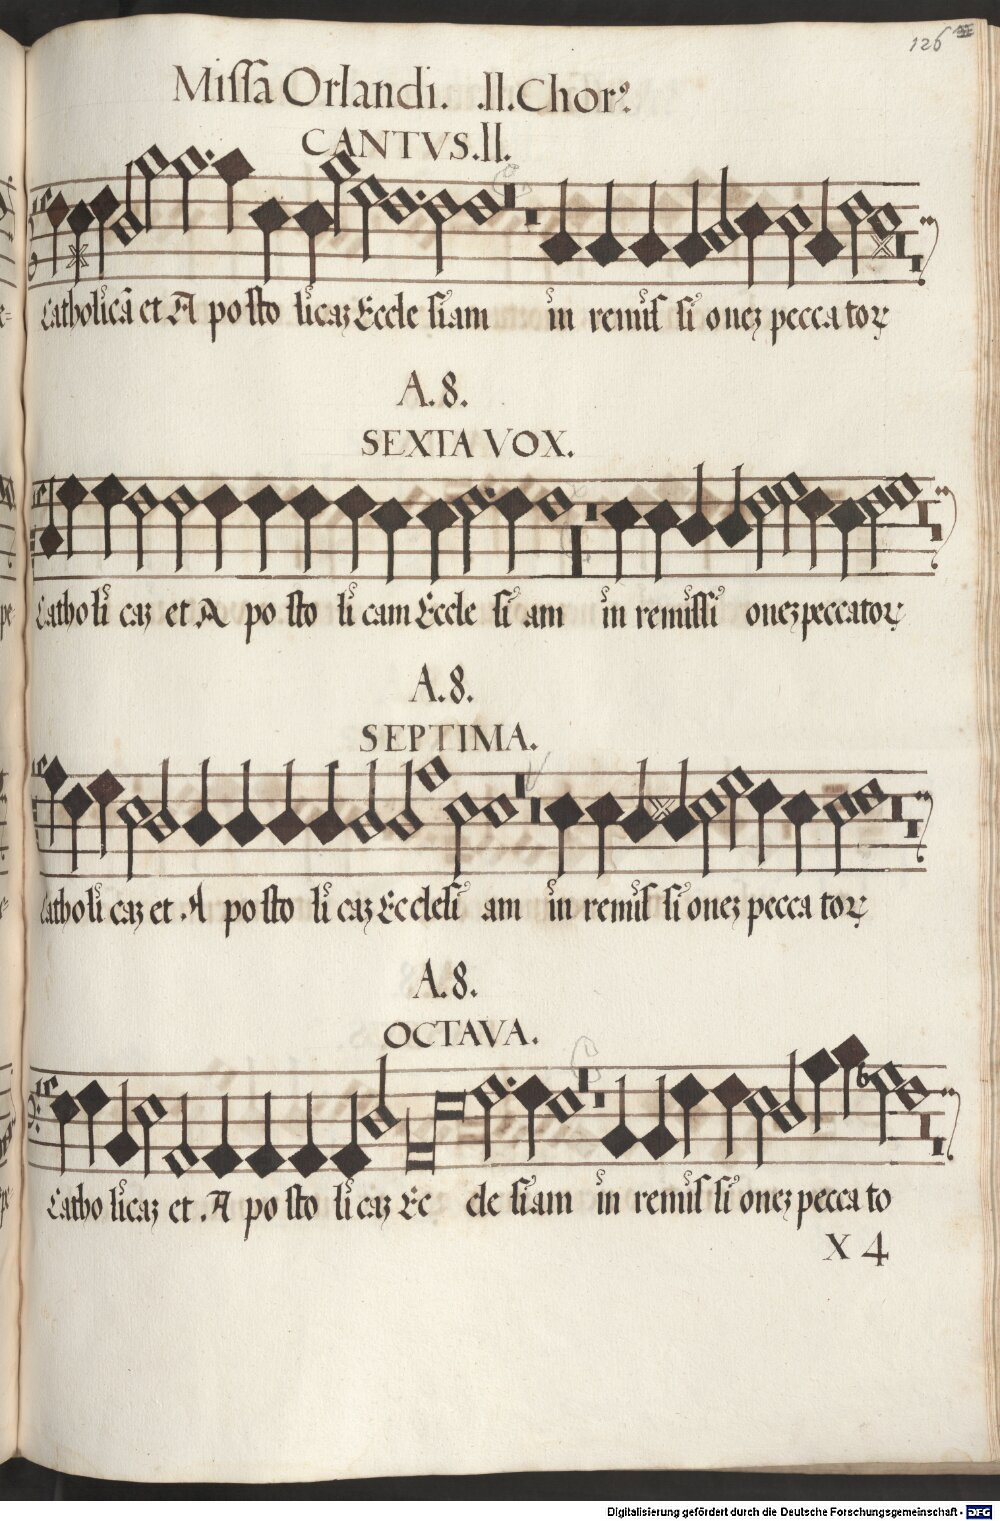 126
Missa Orlandi. .II. Chorꝰ.
CANTVS.II.
Catholicā et A po sto licaȝ Eccle siam in remis si oneȝ pecca toꝝ
A. 8.
SEXTA VOX.
Catholi caȝ et A po sto li cam Eccle si am in remissi oneȝ peccatoꝝ
A. 8.
SEPTIMA.
Catholi caȝ et A po sto li caȝ Ec clesi am in remis si oneȝ pecca toꝝ
A. 8.
OCTAVA.
Catho licaȝ et A po sto li caȝ Ec cle siam in remis si oneȝ pecca to
X 4
Digitalisierung gefördert durch die Deutsche Forschungsgemeinschaft - DFG